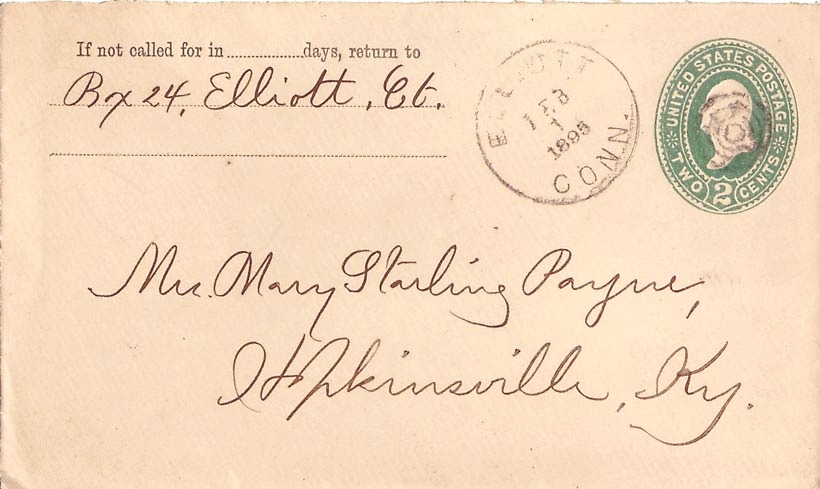 If not called for in..............days, return to
Bx 24, Elliott, Ct.
ELLIOTT
FEB
1
1895
CONN.
UNITED STATES POSTAGE
TWO 2 CENTS
Mrs. Mary Starling Payne,
Hopkinsville, Ky.